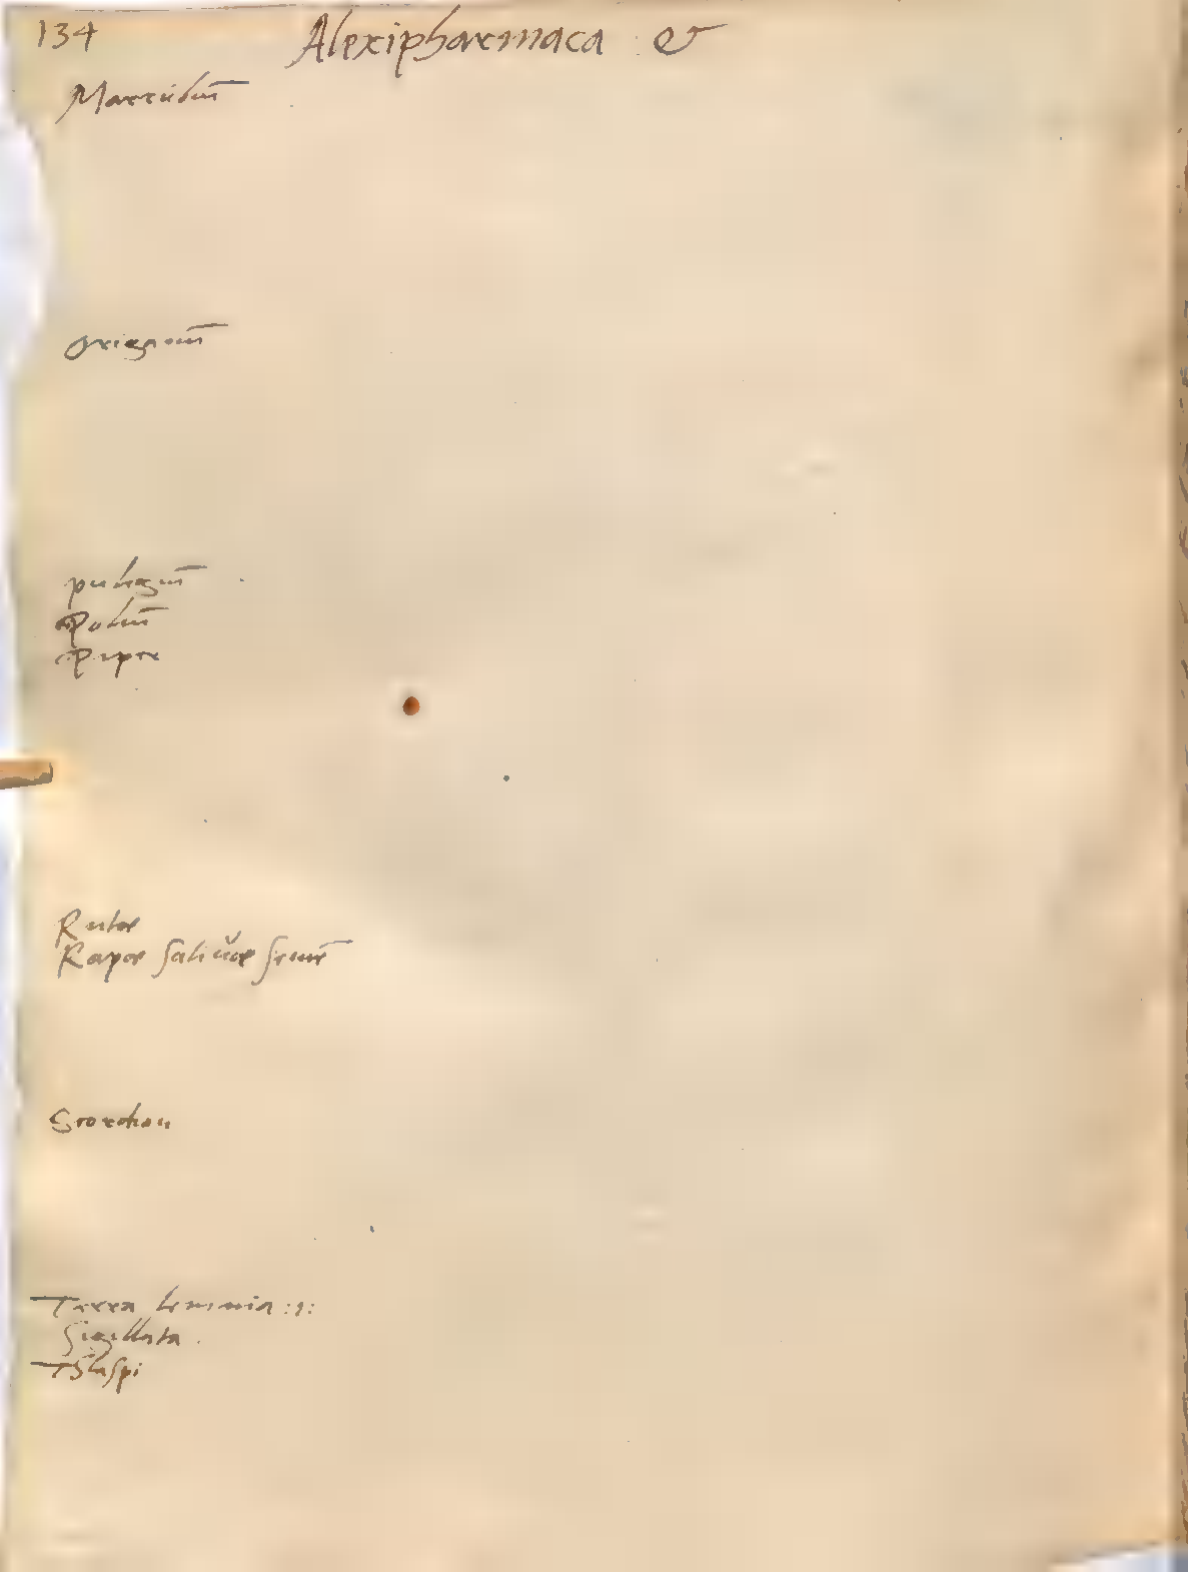 134 Alexipharmaca &
Marrubiū
Origanū
pulegiū
Poliū
Piper
Rutae
Rapae satiuae semē
Scordion
Terra lemnia :1:
Sigillata.
Thlaspi